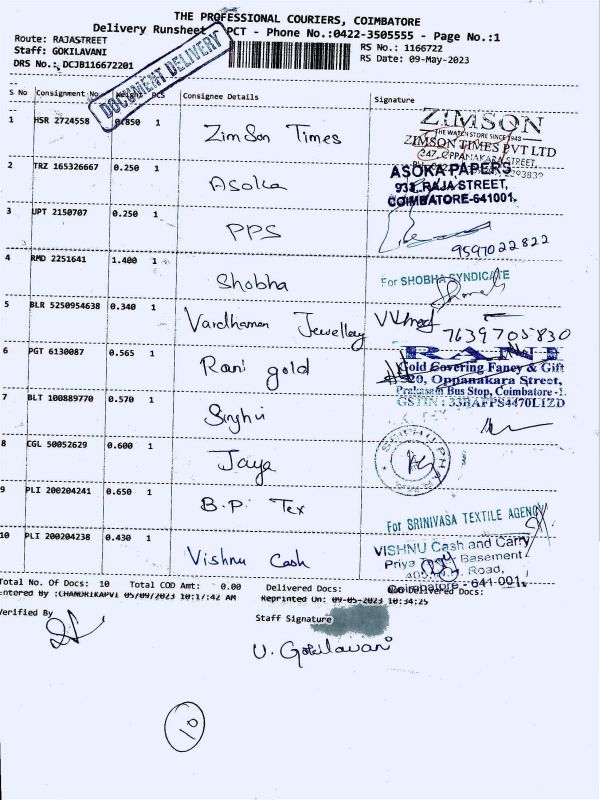 THE PROFESSIONAL COURIERS, COIMBATORE
Delivery Runsheet PCT - Phone No.:0422-3505555 - Page No.:1
Route: RAJASTREET
Staff: GOKILAVANI
DRS No.: DCJB116672201
RS No.: 1166722
RS Date: 09-May-2023
DOCUMENT DELIVERY
S No Consignment No. Weight PCS Consignee Details Signature
1 HSR 2724558 0.850 1 ZimSon Times
ZIMSON
THE WATCH STORE SINCE 1948
ZIMSON TIMES PVT LTD
247, OPPANAKARA STREET,
2 TRZ 165326667 0.250 1 Asoka
ASOKA PAPERS
933, RAJA STREET,
COIMBATORE-641001.
3 UPT 2150707 0.250 1 PPS
9597022822
4 RMD 2251641 1.400 1 Shobha
For SHOBHA SYNDICATE
5 BLR 5250954638 0.340 1 Vardhaman Jewellery
7639705830
6 PGT 6130087 0.565 1 Rani gold
RANI
Gold Covering Fancy & Gift
520, Oppanakara Street,
Prakasam Bus Stop, Coimbatore -1.
GSTIN : 33BAFPS4470L1ZD
7 BLT 100889770 0.570 1 Singhvi
8 CGL 50052629 0.600 1 Jaya
9 PLI 200204241 0.650 1 B.P. Tex
For SRINIVASA TEXTILE AGENCY
10 PLI 200204238 0.430 1 Vishnu Cash
VISHNU Cash and Carry
Priya Basement
Road,
Coimbatore - 641 001.
Total No. Of Docs: 10 Total COD Amt: 0.00 Delivered Docs: Delivered Docs:
Entered By :CHANDRIKAPVI 05/09/2023 10:17:42 AM Reprinted On: 09-05-2023 10:34:25
Verified By
Staff Signature
U. Gokilavani
10